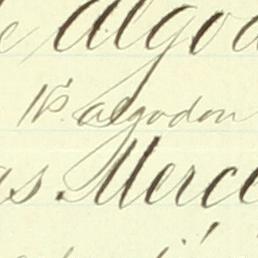 algod
algodon
as Merce